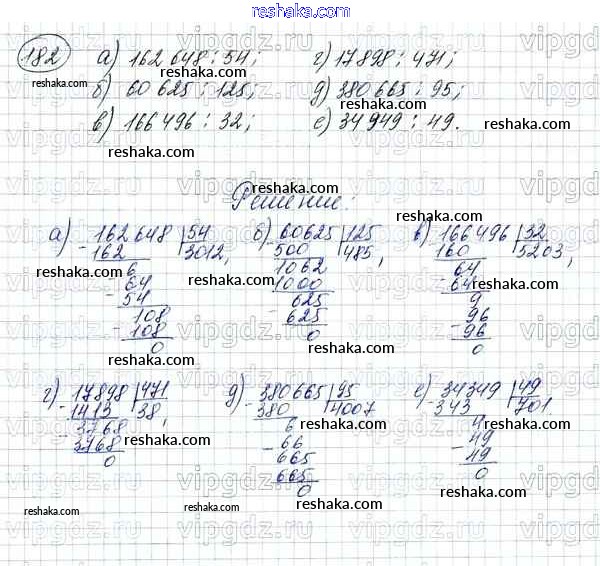 reshaka.com
182 а) 162 648 : 54; г) 17 898 : 471;
б) 60 625 : 125; д) 380 665 : 95;
в) 166 496 : 32; е) 34 949 : 49.
Решение:
а) 162 648 | 54
- 162 3012,
6
- 64
54
108
- 108
0
б) 60625 | 125
- 500 485,
1062
- 1000
625
- 625
0
в) 166496 | 32
- 160 5203,
64
- 64
9
96
- 96
0
г) 17898 | 471
- 1413 38,
3768
- 3768
0
д) 380665 | 95
- 380 4007
6
- 66
665
- 665
0
е) 34349 | 49
- 343 701.
4
- 49
49
0
reshaka.com
vipgdz.ru